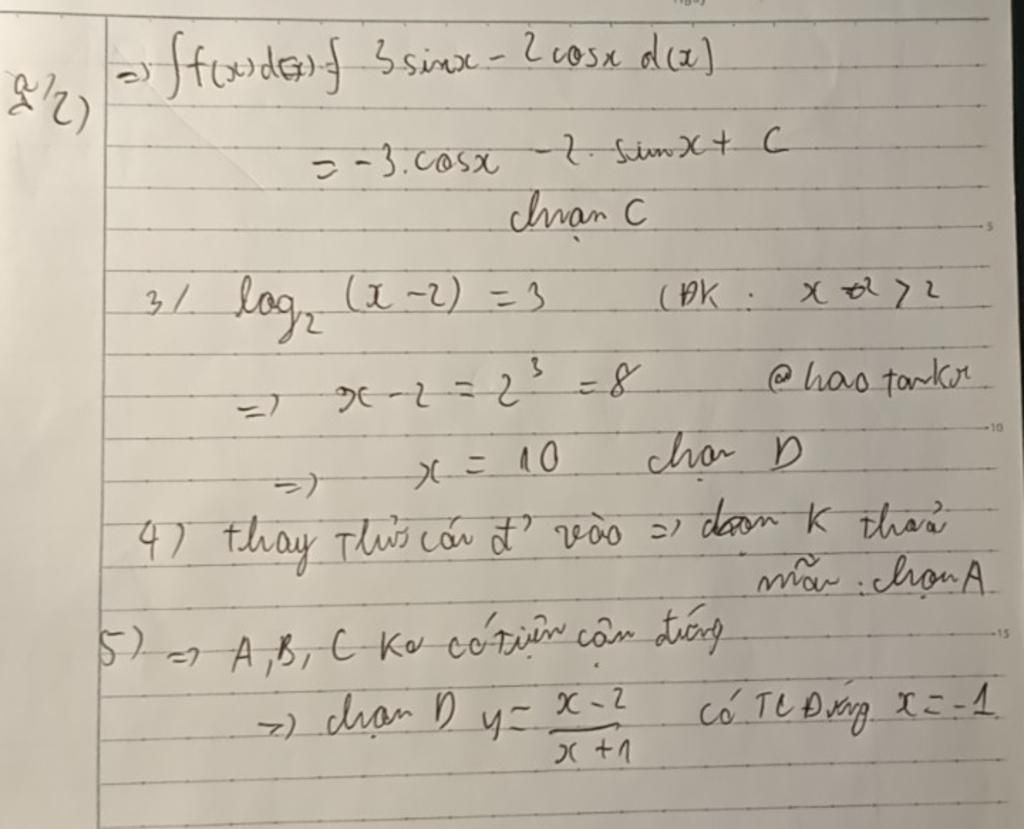 2/ => ∫f(x)d(x) = ∫ 3 sinx - 2 cosx d(x)
= -3.cosx - 2. sinx + C
chọn C
3/ log₂ (x-2) = 3 (ĐK : x > 2
=> x - 2 = 2³ = 8 @haotankr
=> x = 10 chọn D
4) thay thử các đ' vào => chọn K thoả
mãn : chọn A
5) => A, B, C Ko có tiệm cận đứng
=> chọn D y = (x-2)/(x+1) có TC Đứng x = -1